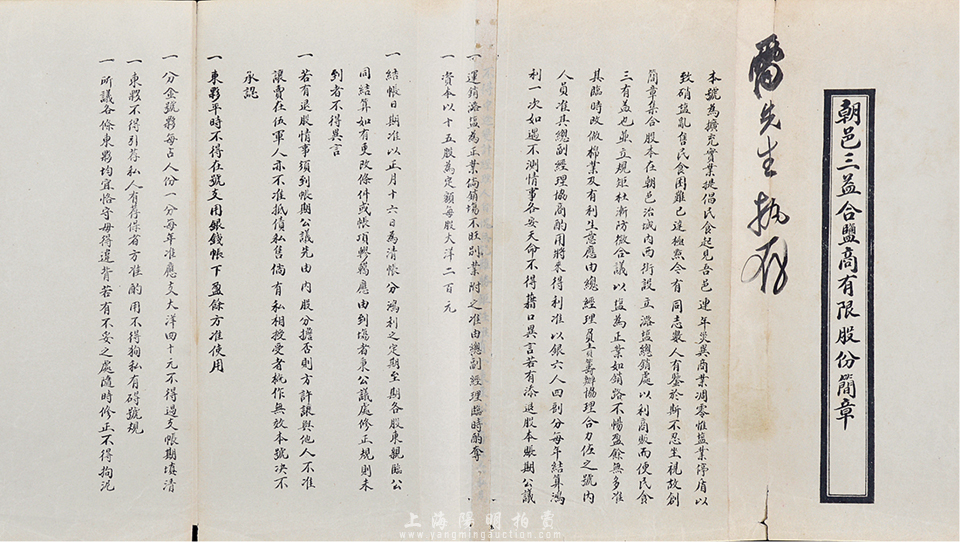 朝邑三益合鹽商有限股份簡章
雷先生執存
本號為擴充實業提倡民食起見吾邑連年災異商業凋零惟鹽業停廢以
致硝鹽亂售民食困難已達極點今有同志數人有鑒於斯不忍坐視故創
簡章集合股本在朝邑治城內西街設立潞鹽總銷處以利商販而便民食
三有益也並立規矩杜漸防微合議以鹽為正業如銷路不暢盈餘無多准
其臨時改做棉業及有利生意應由總經理員責籌辦協理合力佐之號內
人員准其總副經理協商酌用將來得利准以銀六人四剖分每年結算鴻
利一次如遇不測情事各安天命不得藉口異言若有添退股本賬期公議
一運銷潞鹽為正業倘銷塲不旺副業附之准由總副經理臨時酌奪
一資本以十五股為定額每股大洋二百元
一結帳日期准以正月十六日為清帳分鴻利之定期至期各股東親臨公
同結算如有更改條件或帳項轇轕應由到塲者東公議處修正規則未
到者不得異言
一若有退股情事須到帳期公議先由內股分擔否則方許讓與他人不准
讓賣在伍軍人亦不准抵債私售倘有私相授受者概作無效本號决不
承認
一東夥平時不得在號支用銀錢帳下盈餘方准使用
一分金號夥每占人份一分每年准應支大洋四十元不得過支帳期填清
一東夥不得引荐私人有荐保者方准酌用不得徇私有碍號規
一所議各條東夥均宜恪守毋得違背若有不妥之處隨時修正不得拘泥
上海陽明拍賣
www.yangmingauction.com